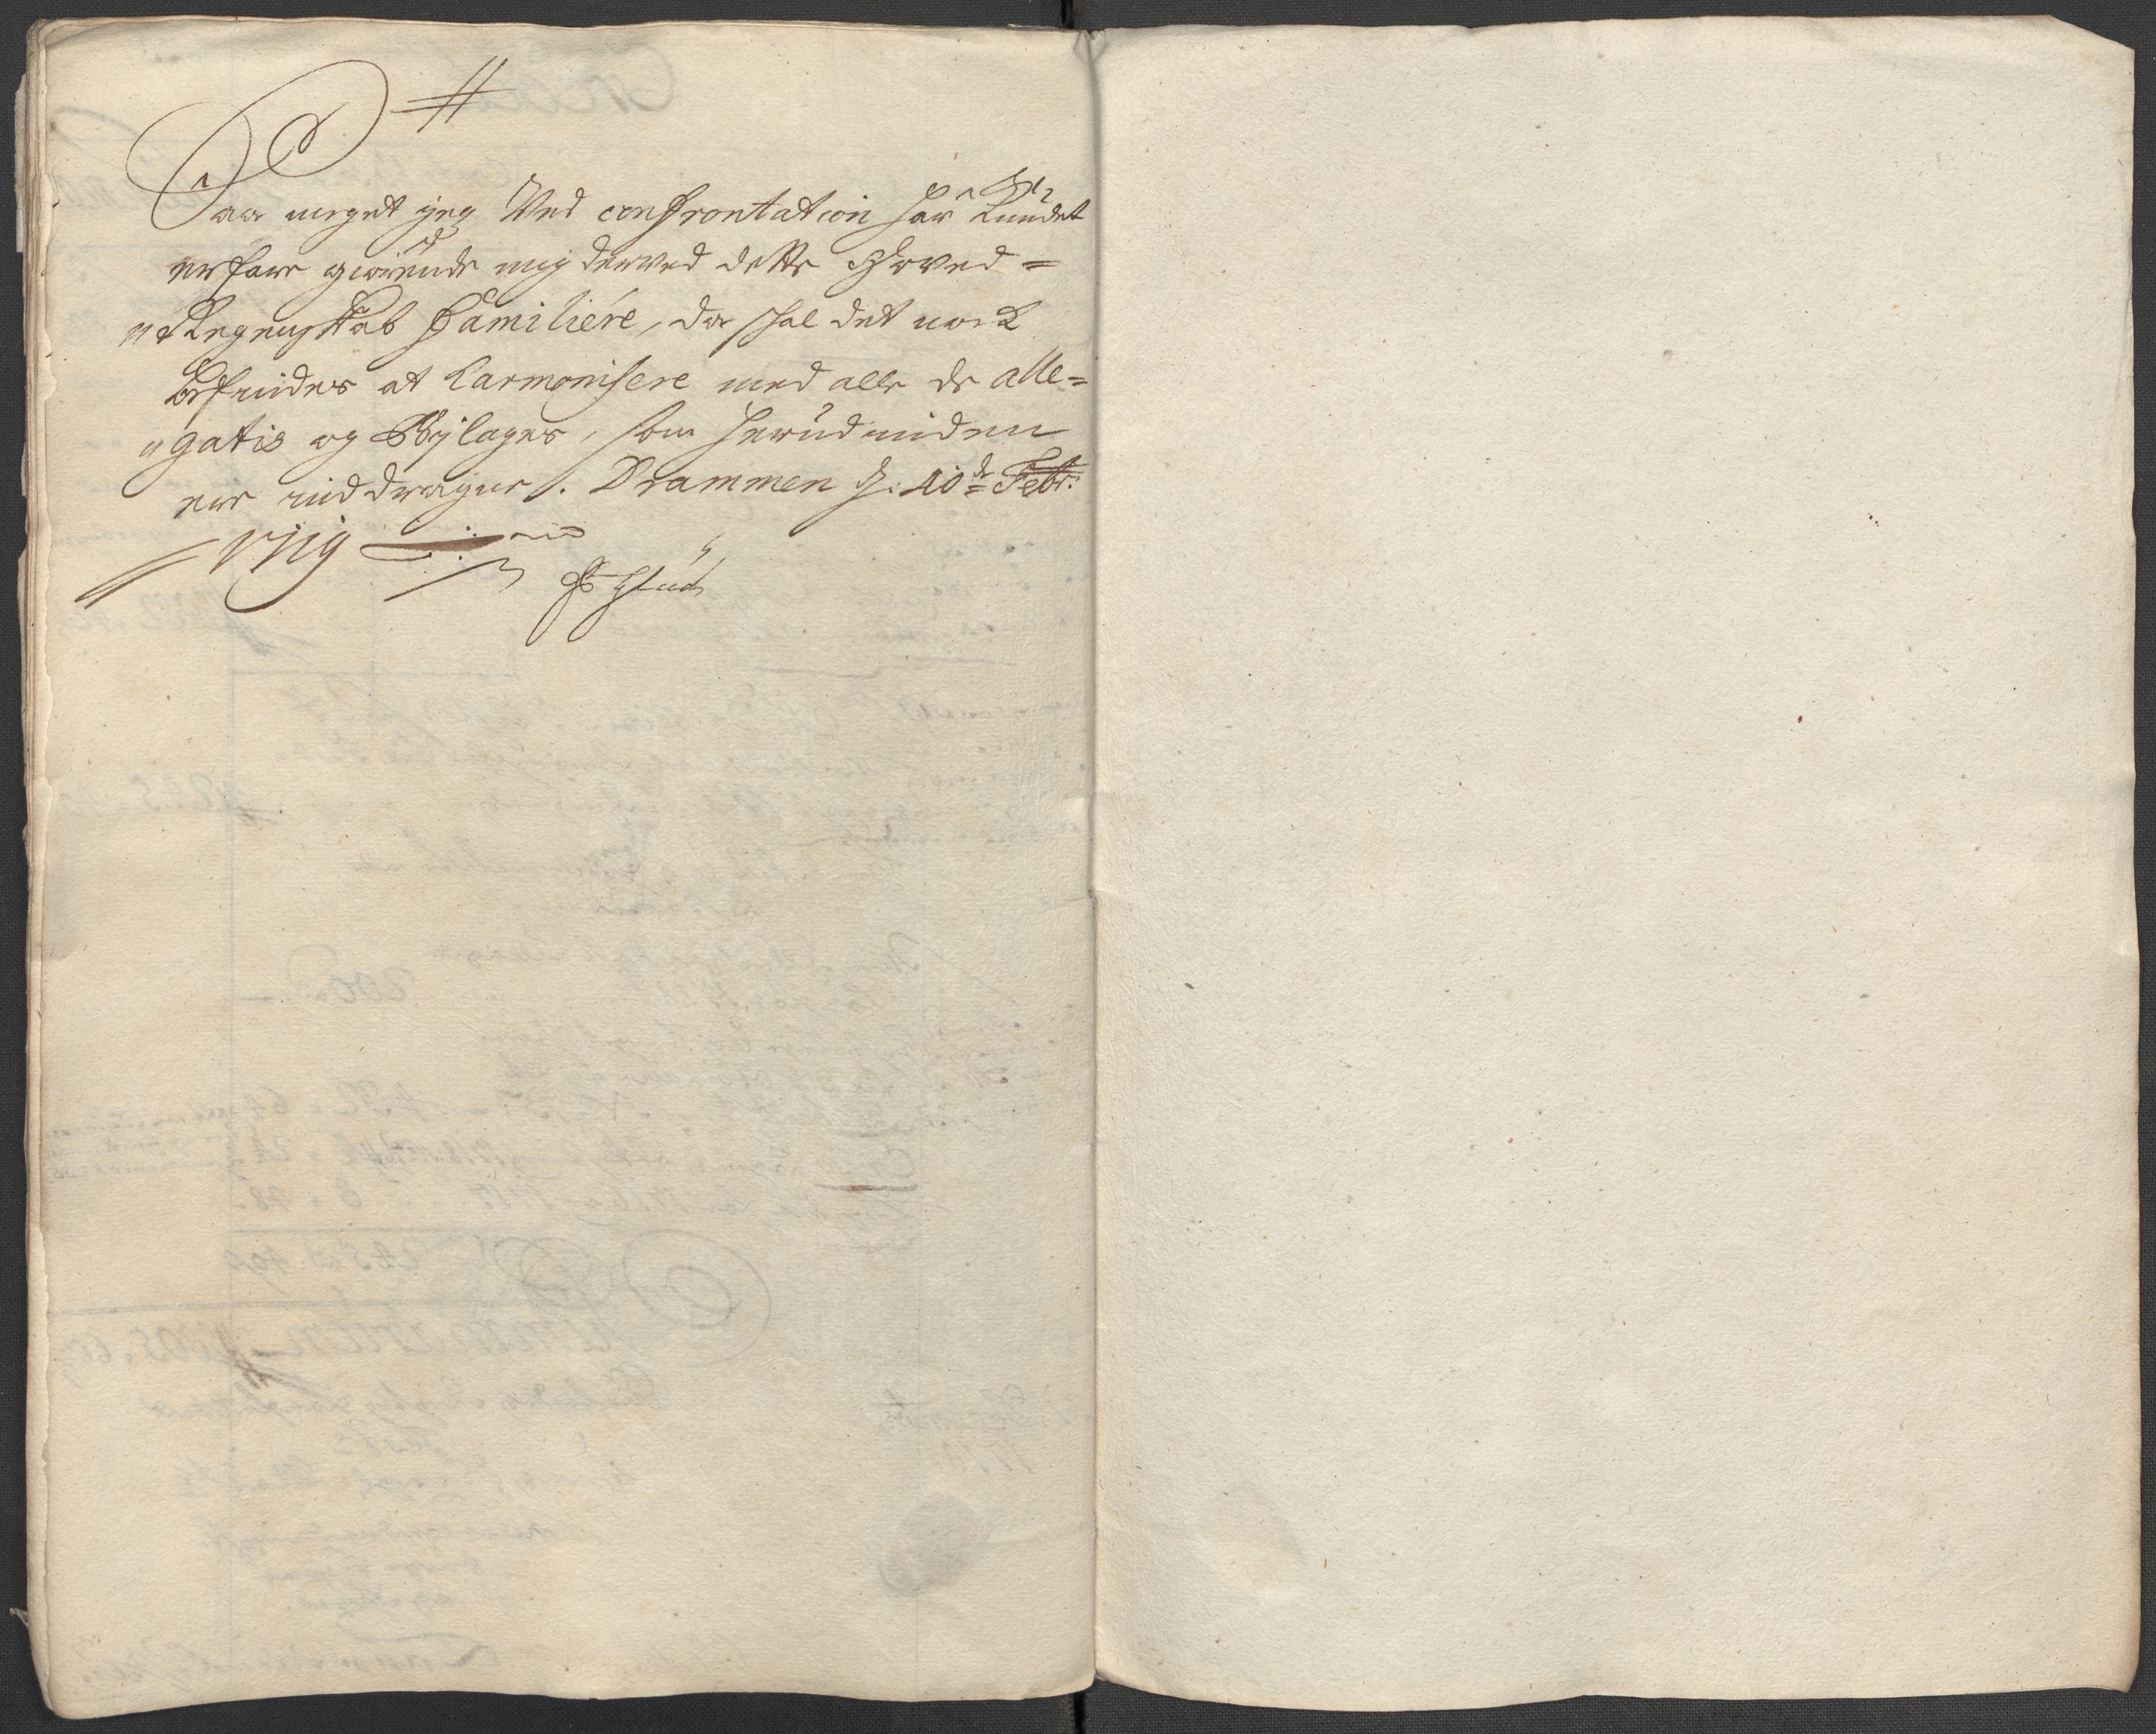 Saa meget jeg Ved confrontation har Kundet
erfare giørende mig derved dette Hoved=
"Regenskab Familiére, da skal det nock
befindes at harmonisere med alle de alle=
"gatis og Bylager, som herudinden
ere inddragne. Drammen d: 10de Febr:
1719